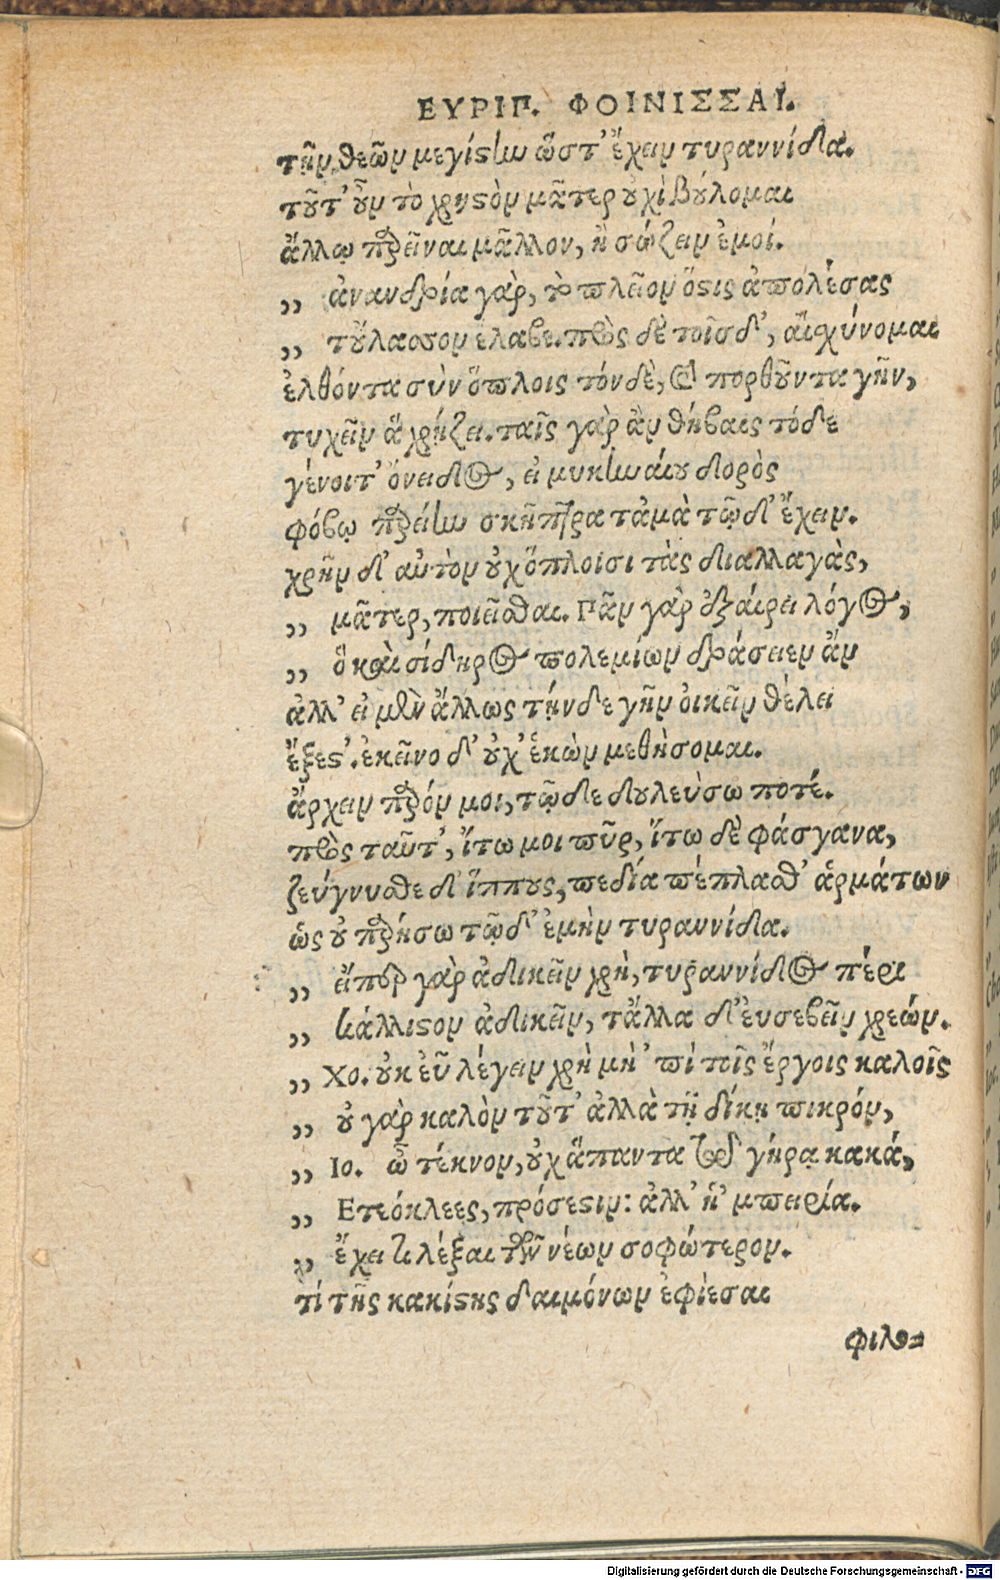 ΕΥΡΙΠ. ΦΟΙΝΙΣΣΑΙ.
τῆν θεῶν μεγίστην ὥστ' ἔχειν τυραννίδα.
τοῦτ' οὖν τὸ χρηστὸν μᾶτερ οὐχὶ βούλομαι
ἄλλῳ παρεῖναι μᾶλλον, ἢ σώζειν ἐμοί.
,, ἀνανδρία γὰρ, τὸ πλεῖον ὅστις ἀπολέσας
,, τοὔλασσον ἔλαβε. πρὸς δὲ τοῖσδ', αἰσχύνομαι
ἐλθόντα σὺν ὅπλοις τόνδε, καὶ πορθοῦντα γῆν,
τυχεῖν ἃ χρῄζει. ταῖς γὰρ ἂν θήβαις τόδε
γένοιτ' ὄνειδος, εἰ μυκηναίου δορὸς
φόβῳ παρείην σκῆπτρα τἀμὰ τῷδ' ἔχειν.
χρῆν δ' αὐτὸν οὐχ ὅπλοισι τὰς διαλλαγὰς,
,, μᾶτερ, ποιεῖσθαι. Πᾶν γὰρ ἐξαίρει λόγος,
,, ὃ καὶ σίδηρος πολεμίων δράσειεν ἄν
ἀλλ' εἰ μὲν ἄλλως τήνδε γῆν οἰκεῖν θέλει
ἔξεστ'. ἐκεῖνο δ' οὐχ' ἑκὼν μεθήσομαι.
ἄρχειν παρόν μοι, τῷδε δουλεύσω ποτέ.
πρὸς ταῦτ', ἴτω μοι πῦρ, ἴτω δὲ φάσγανα,
ζεύγνυσθε δ' ἵππους, πεδία πέπλασθ' ἁρμάτων
ὡς οὐ παρήσω τῷδ' ἐμὴν τυραννίδα.
,, εἴπερ γὰρ ἀδικεῖν χρὴ, τυραννίδος πέρι
,, κάλλιστον ἀδικεῖν, τἄλλα δ' ἐυσεβεῖν χρεών.
,, Χο. οὐκ εὖ λέγειν χρὴ μὴ 'πὶ τοῖς ἔργοις καλοῖς
,, οὐ γὰρ καλὸν τοῦτ' ἀλλὰ τῇ δίκῃ πικρόν,
,, Ιο. ὦ τέκνον, οὐχ ἅπαντα τῷ γήρᾳ κακά,
,, Ετεόκλεες, πρόσεστιν: ἀλλ' ἡ' μπειρία.
,, ἔχει τι λέξαι τῶν νέων σοφώτερον.
τί τῆς κακίστης δαιμόνων ἐφίεσαι
φιλο-
Digitalisierung gefördert durch die Deutsche Forschungsgemeinschaft - DFG